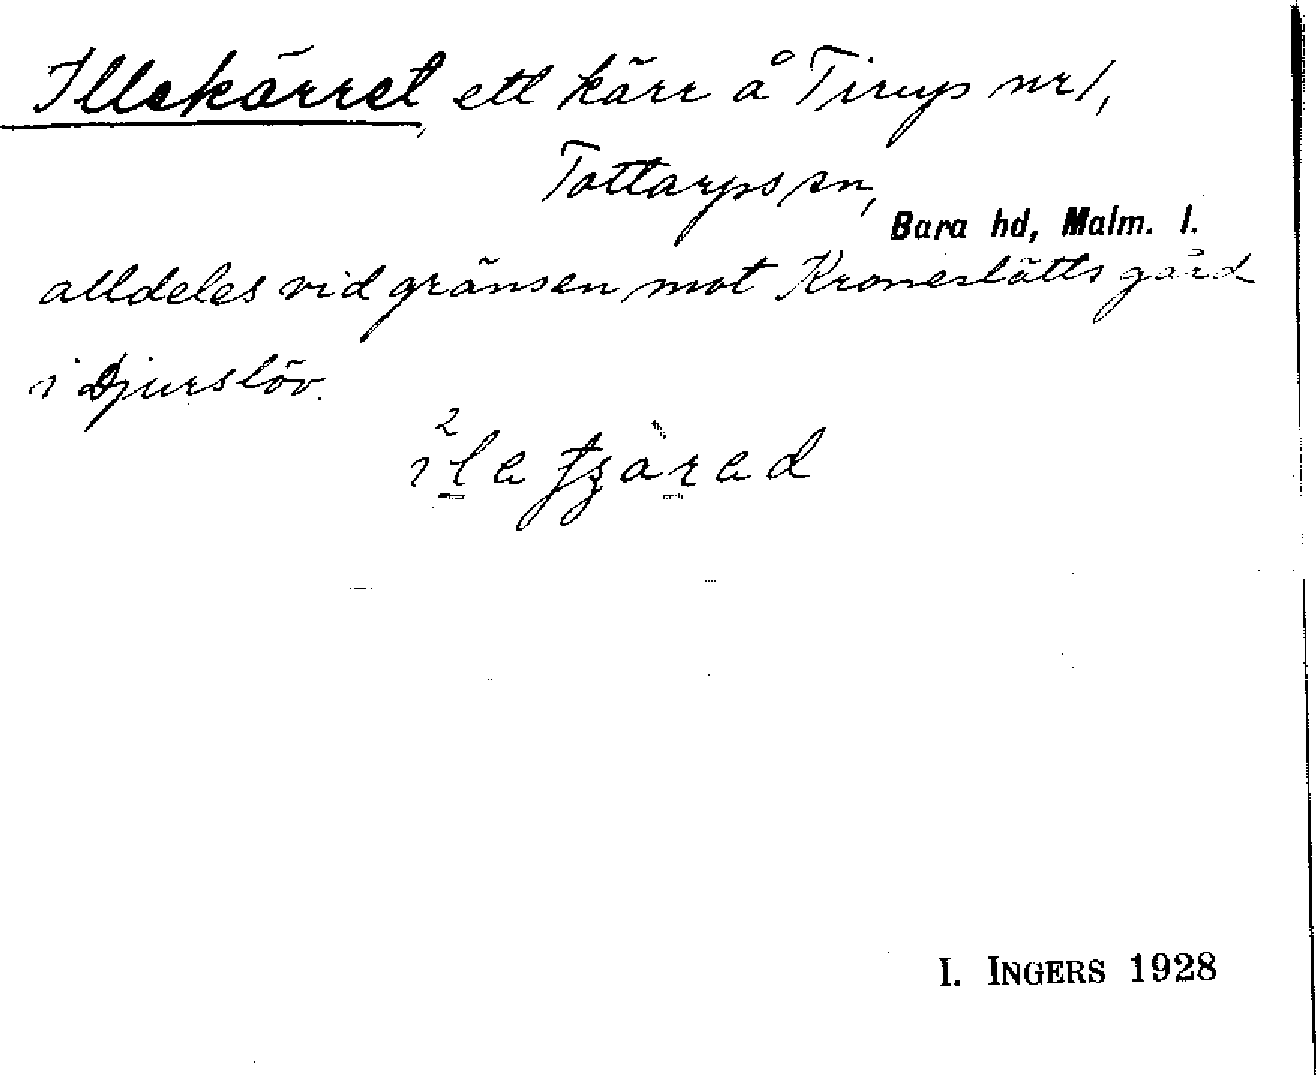 Illekärret, ett kärr å Tirup nr 1,
Tottarps sn,
Bara hd, Malm. l.
alldeles vid gränsen mot Kronetslätts gård
i Djurslöv.
I. INGERS 1928